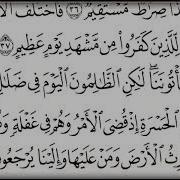 صِرَٰطٌ مُّسْتَقِيمٌ ٣٦ فَٱخْتَلَفَ
لِّلَّذِينَ كَفَرُوا۟ مِن مَّشْهَدِ يَوْمٍ عَظِيمٍ ٣٧
أْتُونَنَا ۖ لَٰكِنِ ٱلظَّٰلِمُونَ ٱلْيَوْمَ فِى ضَلَٰلٍ
ٱلْحَسْرَةِ إِذْ قُضِىَ ٱلْأَمْرُ وَهُمْ فِى غَفْلَةٍ وَ
رِثُ ٱلْأَرْضَ وَمَنْ عَلَيْهَا وَإِلَيْنَا يُرْجَعُو